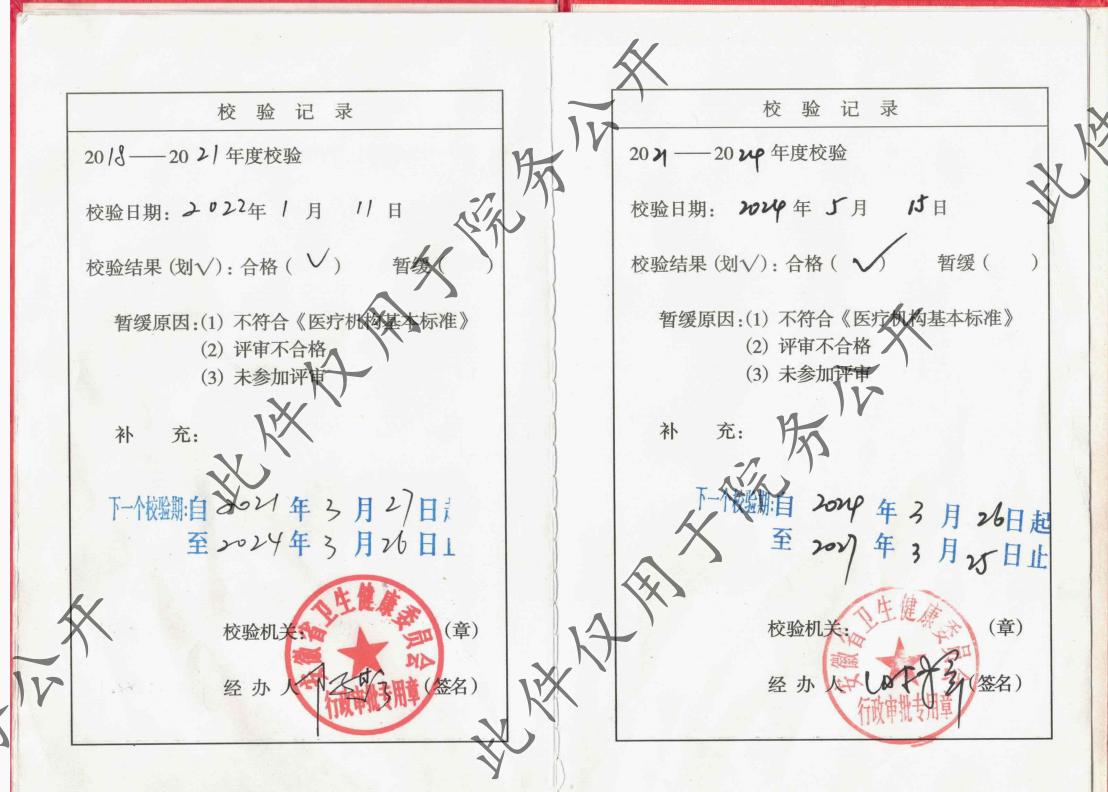 校验记录
2018——2021年度校验
校验日期：2022年1月11日
校验结果(划√)：合格(√) 暂缓( )
暂缓原因：(1) 不符合《医疗机构基本标准》
(2) 评审不合格
(3) 未参加评审
补 充：
下一个校验期：自2021年3月27日起
至2024年3月26日止
校验机关： (章)
安徽省卫生健康委员会
行政审批专用章
经办人 (签名)
校验记录
2021——2024年度校验
校验日期：2024年5月15日
校验结果(划√)：合格(√) 暂缓( )
暂缓原因：(1) 不符合《医疗机构基本标准》
(2) 评审不合格
(3) 未参加评审
补 充：
下一个校验期：自2024年3月26日起
至2027年3月25日止
校验机关： (章)
安徽省卫生健康委员会
行政审批专用章
经办人 (签名)
此件仅用于院务公开
此件仅用于院务公开
此件
务公开